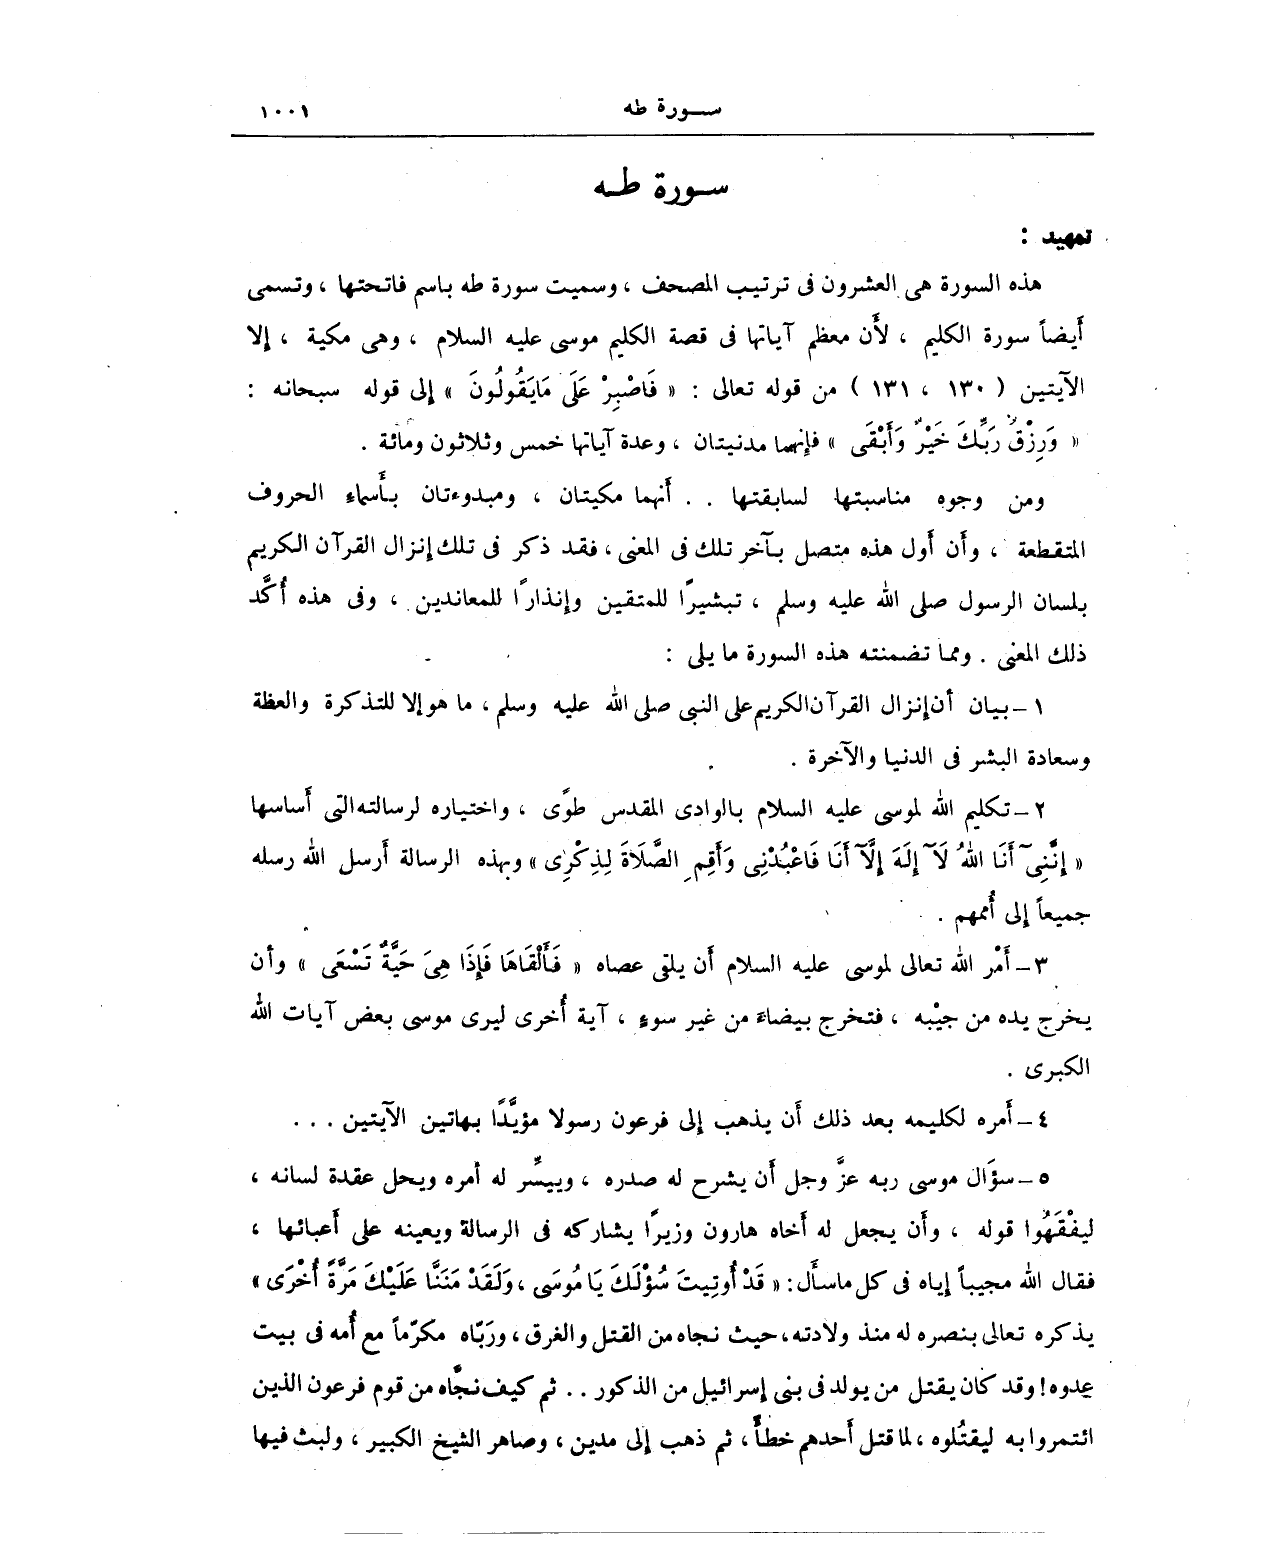 سورة طه ١٠٠١
سورة طه
تمهيد :
هذه السورة هى العشرون فى ترتيب المصحف ، وسميت سورة طه باسم فاتحتها ، وتسمى
أيضاً سورة الكليم ، لأن معظم آياتها فى قصة الكليم موسى عليه السلام ، وهى مكية ، إلا
الآيتين ( ١٣٠ ، ١٣١ ) من قوله تعالى : « فَاصْبِرْ عَلَى مَايَقُولُونَ » إلى قوله سبحانه :
« وَرِزْقُ رَبِّكَ خَيْرٌ وَأَبْقَى » فإنهما مدنيتان ، وعدة آياتها خمس وثلاثون ومائة .
ومن وجوه مناسبتها لسابقتها . . أنهما مكيتان ، ومبدوءتان بأسماء الحروف
المتقطعة ، وأن أول هذه متصل بآخر تلك فى المعنى ، فقد ذكر فى تلك إنزال القرآن الكريم
بلسان الرسول صلى الله عليه وسلم ، تبشيرًا للمتقين وإنذارًا للمعاندين ، وفى هذه أكَّد
ذلك المعنى . ومما تضمنته هذه السورة ما يلى :
١ - بيان أن إنزال القرآن الكريم على النبى صلى الله عليه وسلم ، ما هو إلا للتذكرة والعظة
وسعادة البشر فى الدنيا والآخرة .
٢ - تكليم الله لموسى عليه السلام بالوادى المقدس طوًى ، واختياره لرسالته التى أساسها
« إِنَّنِىٓ أَنَا اللهُ لَآ إِلَهَ إِلَّآ أَنَا فَاعْبُدْنِى وَأَقِمِ الصَّلَاةَ لِذِكْرِى » وبهذه الرسالة أرسل الله رسله
جميعاً إلى أُممهم .
٣ - أَمْر الله تعالى لموسى عليه السلام أن يلقى عصاه « فَأَلْقَاهَا فَإِذَا هِىَ حَيَّةٌ تَسْعَى » وأن
يخرج يده من جيْبه ، فتخرج بيضاءَ من غير سوءٍ ، آية أُخرى ليرى موسى بعض آيات الله
الكبرى .
٤ - أمره لكليمه بعد ذلك أن يذهب إلى فرعون رسولا مؤيَّدًا بهاتين الآيتين . . .
٥ - سؤال موسى ربه عزَّ وجل أن يشرح له صدره ، وييسِّر له أمره ويحل عقدة لسانه ،
ليفْقَهُوا قوله ، وأن يجعل له أخاه هارون وزيرًا يشاركه فى الرسالة ويعينه على أعبائها ،
فقال الله مجيباً إياه فى كل ماسأل : « قَدْ أُوتِيتَ سُؤْلَكَ يَا مُوسَى ، وَلَقَدْ مَنَنَّا عَلَيْكَ مَرَّةً أُخْرَى »
يذكره تعالى بنصره له منذ ولادته ، حيث نجاه من القتل والغرق ، ورَبّاه مكرّماً مع أُمه فى بيت
عدوه ! وقد كان يقتل من يولد فى بنى إسرائيل من الذكور . . ثم كيف نجَّاه من قوم فرعون الذين
ائتمروا به ليقتُلوه ، لما قتل أحدهم خطأً ، ثم ذهب إلى مدين ، وصاهر الشيخ الكبير ، ولبث فيها